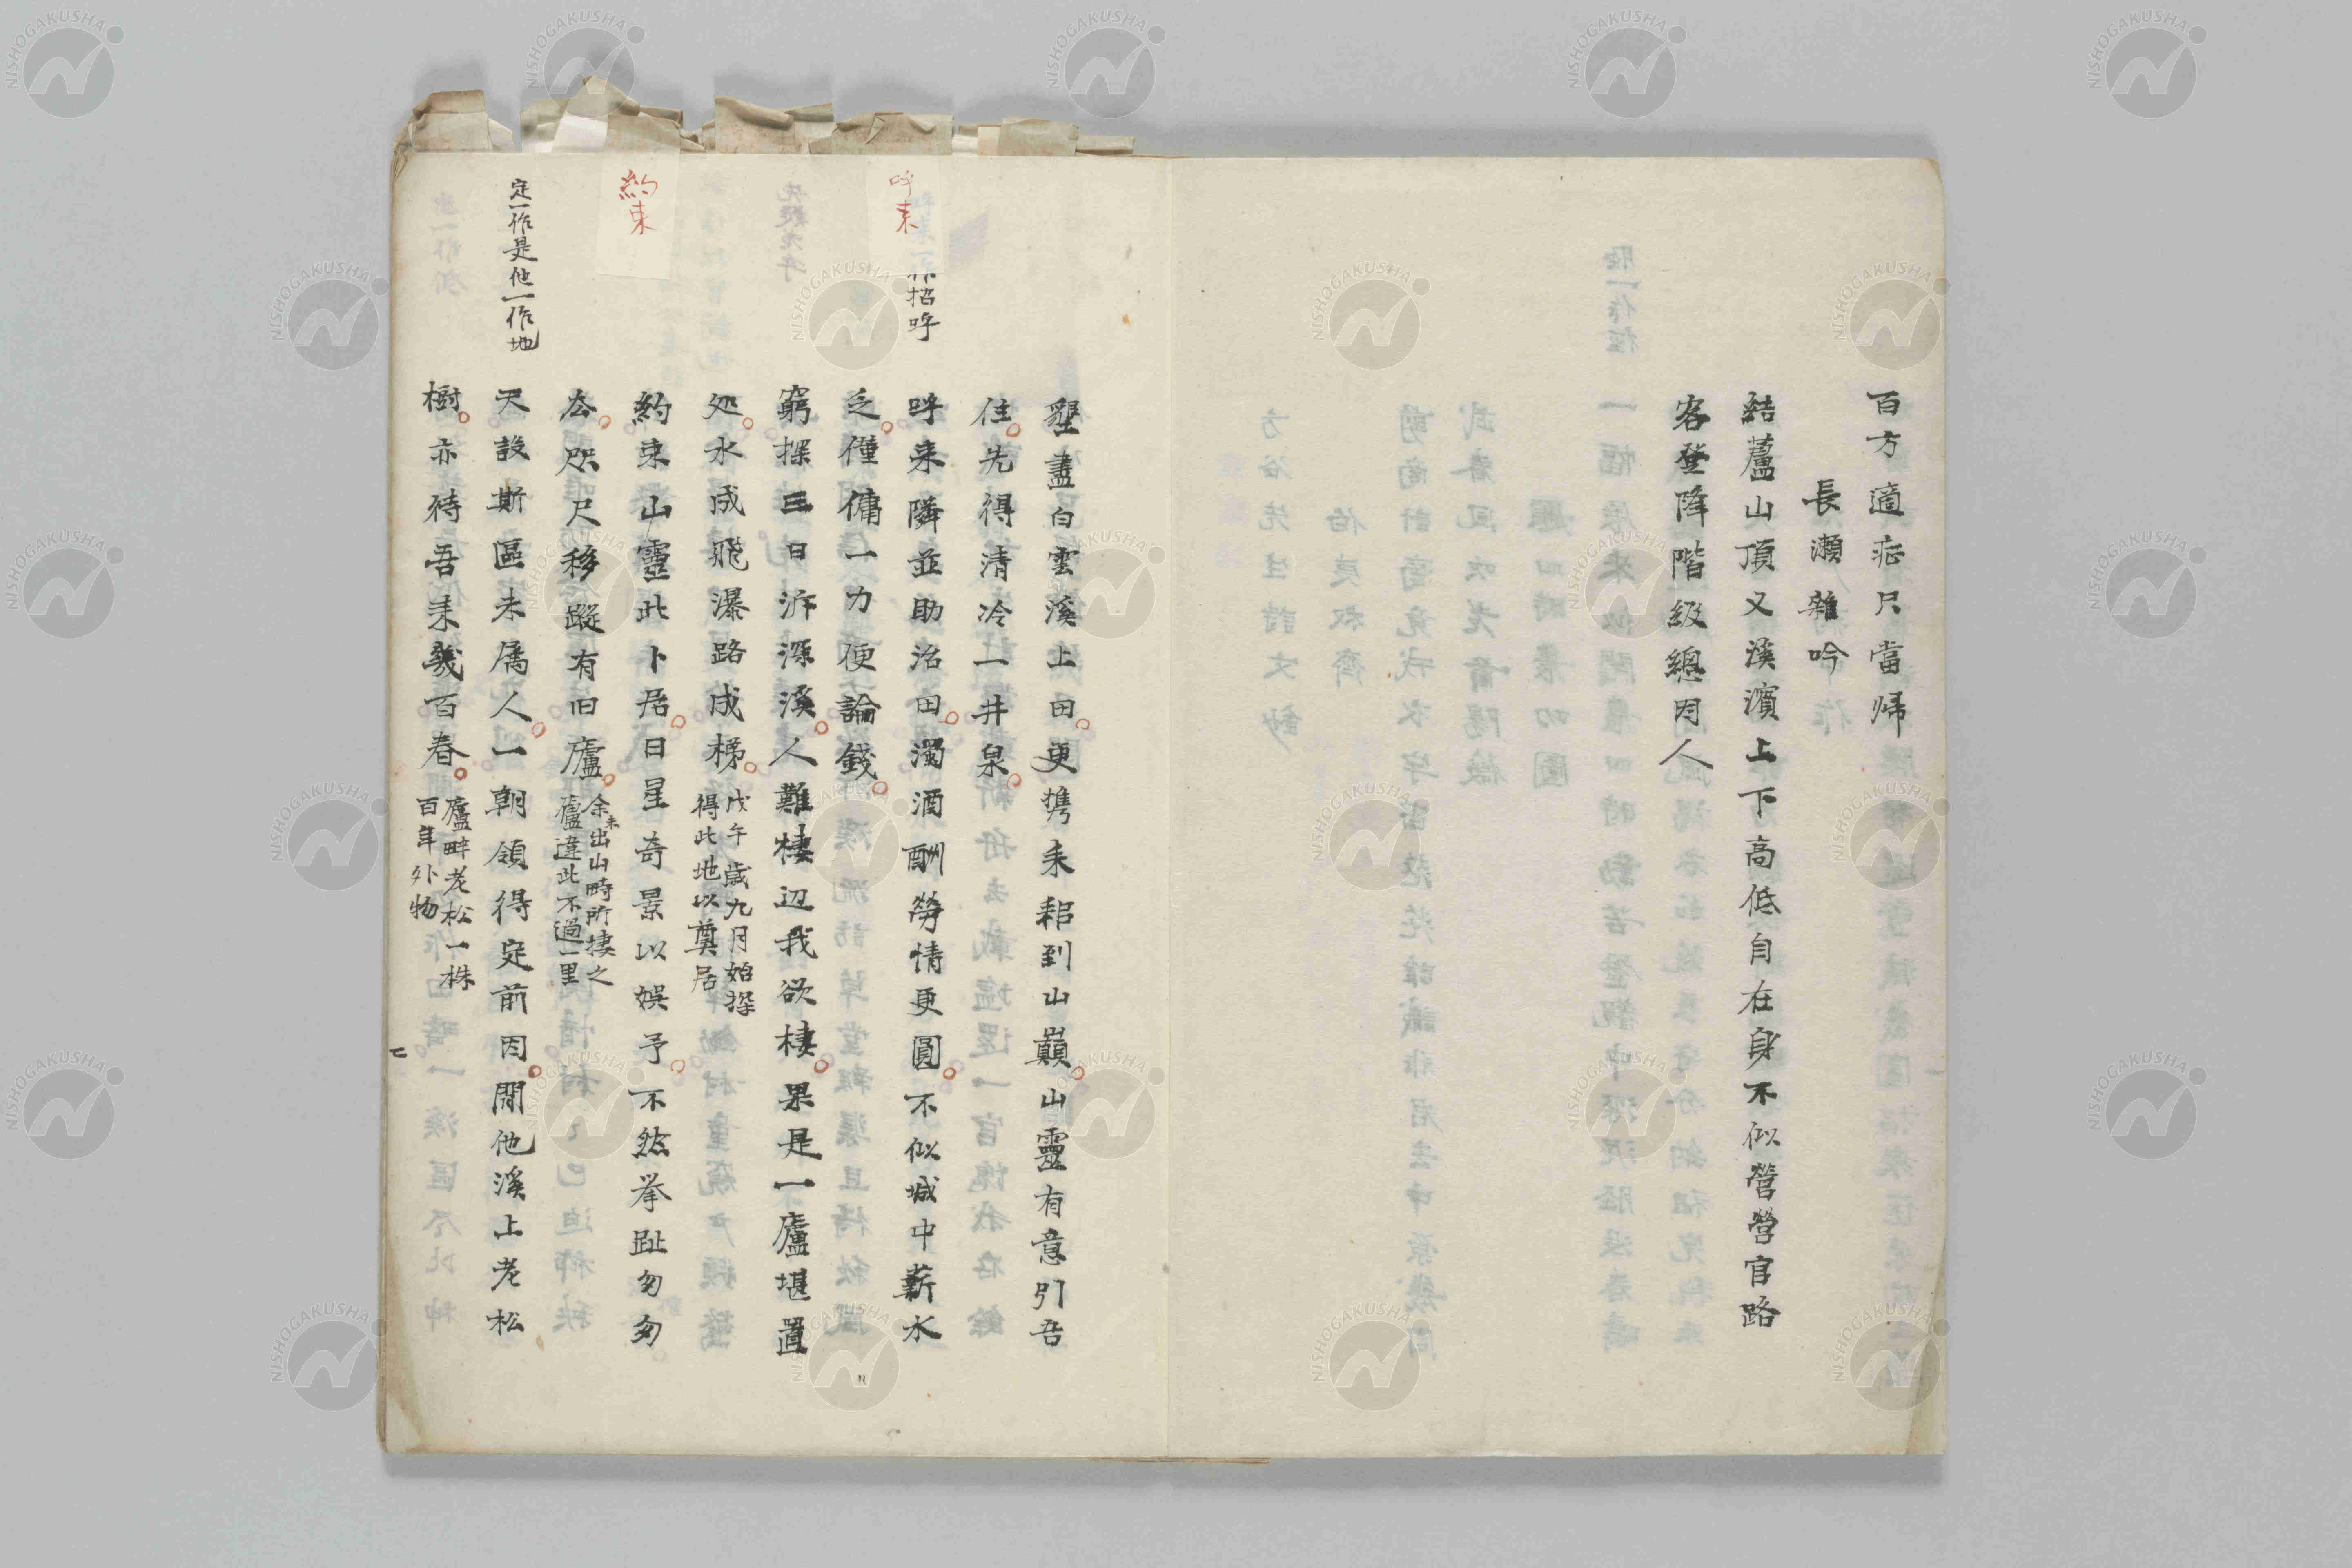 百方適症只當帰
長瀬雜吟
結蘆山頂又溪濱上下高低自在身不似營營官路
客登降階級總因人
墾盡白雲溪上田更携耒耜到山巔山靈有意引吾
住先得清冷一井泉
呼来隣並助治田濁酒酬勞情更圓不似城中薪水
乏僮傭一力便論錢
窮探三日泝深溪人難棲辺我欲棲果是一廬堪置
処水成飛瀑路成梯
戊午歳九月始探
得此地以奠居
約束山靈此卜居日星奇景以娯予不然挙趾匆匆
去咫尺移蹤有旧廬
余未出山時所棲之
廬違此不過一里
天設斯區未属人一朝領得定前因間他溪上老松
樹亦待吾来幾百春
廬畔老松一株
百年外物
呼来
作招呼
約束
定一作是他一作地
NISHOGAKUSHA